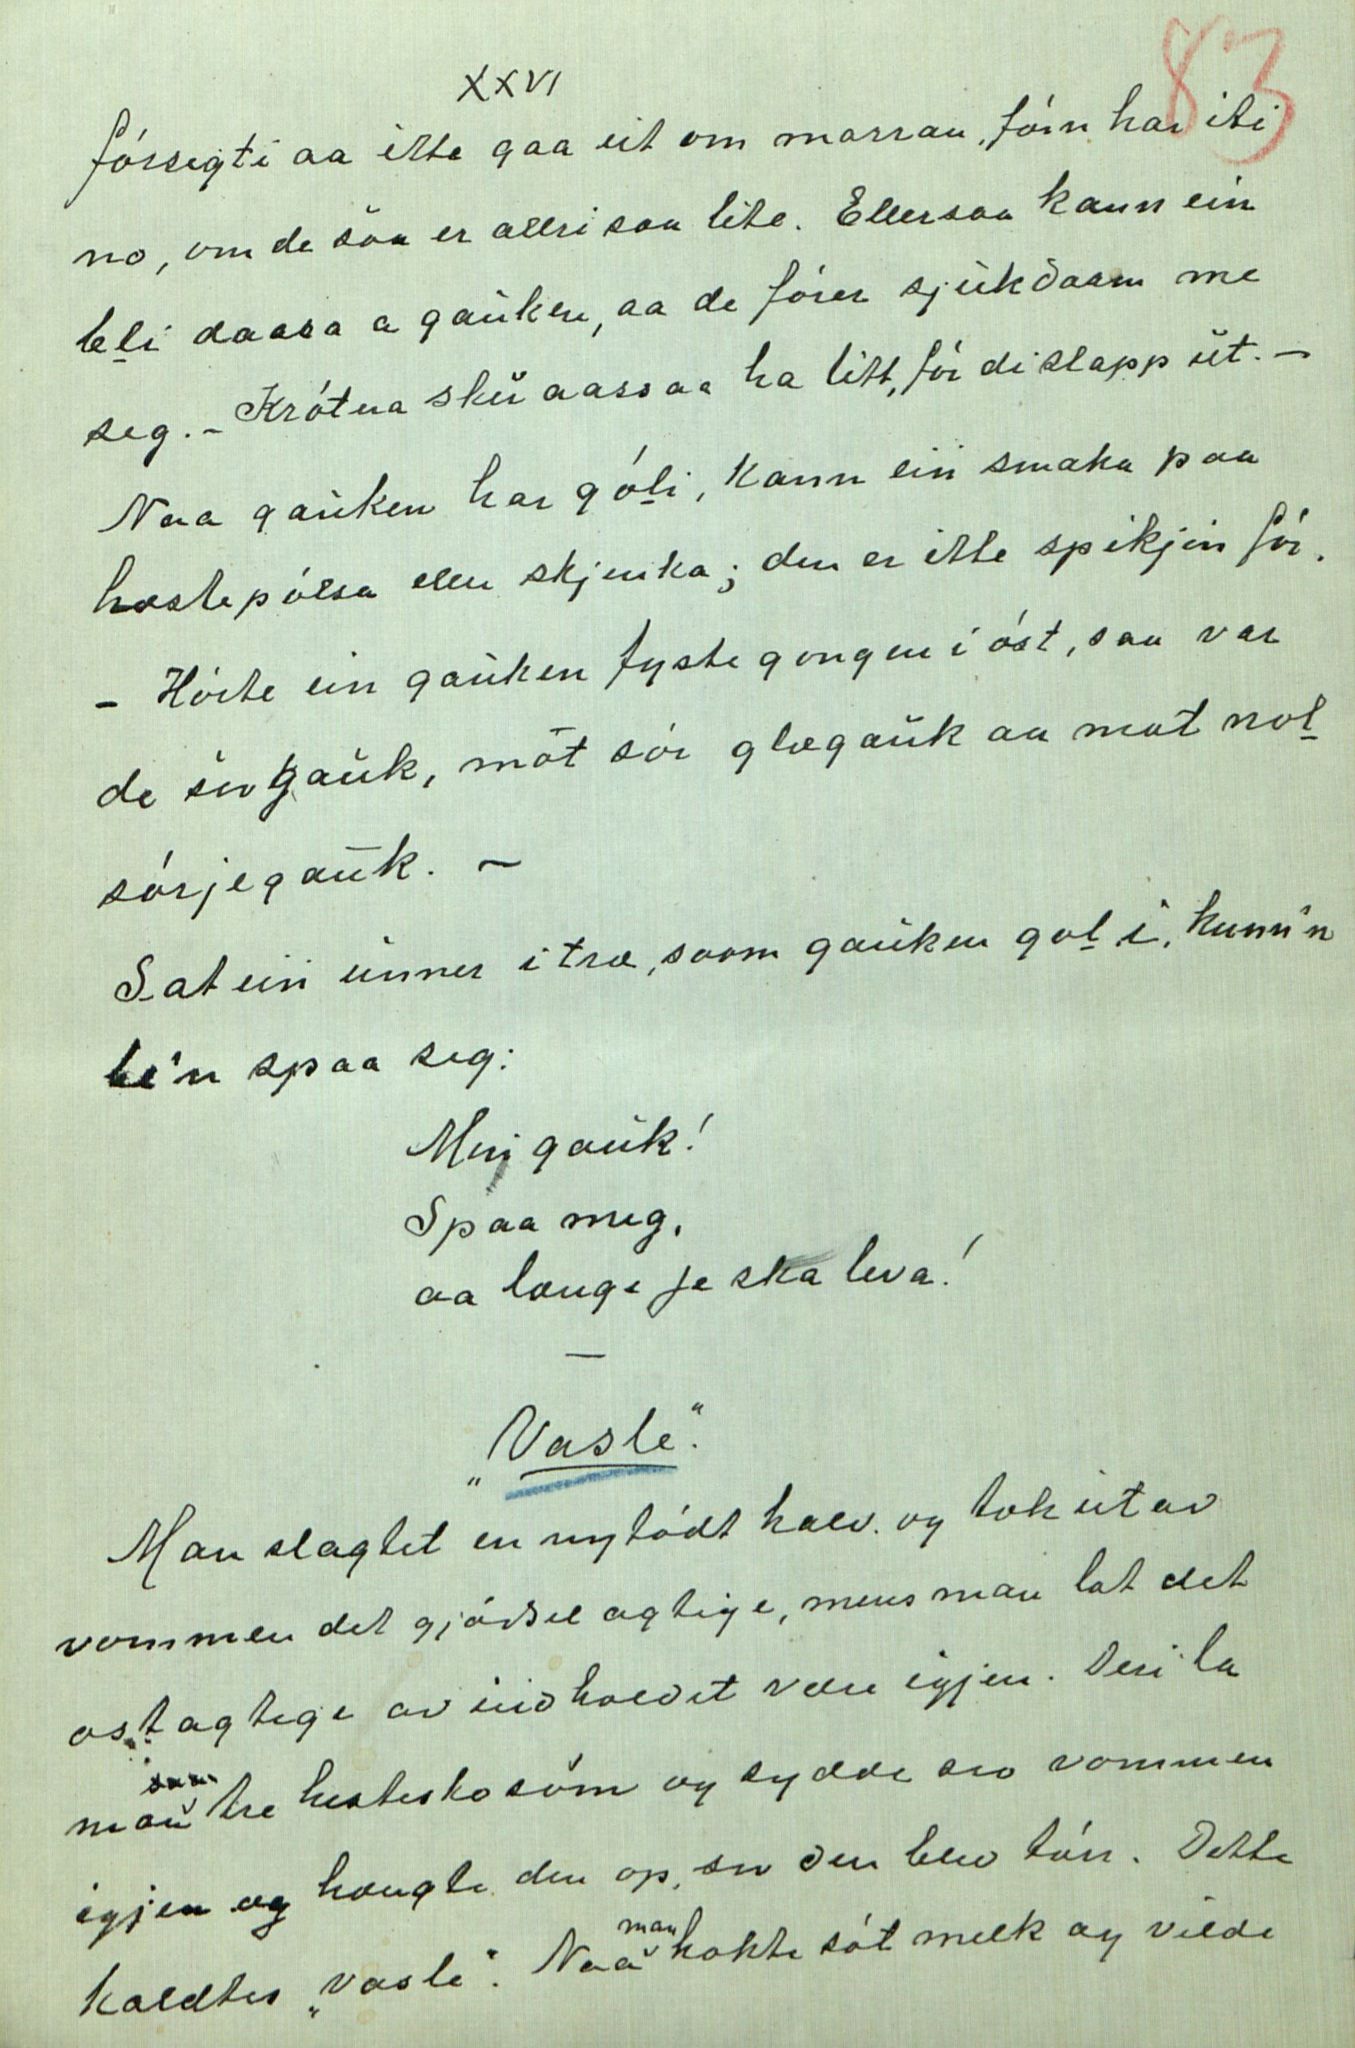 83
XXVI
fórsigti aa itte gaa út om marran, fór'n har iti
no, om de saa er allri saa lite. Ellersaa kann ein
bli daara a gaúken, aa de fórer sjúkdaam me
seg. – Krótua skú aassaa ha litt, fór di slapp út. –
Naa gaúken har góli, kann ein smaka paa
hestepólsa eller skjenka; den er itte spikjin fór.
– Hórte ein gaúken fyste gongen i óst, saa var
de suvgaúk, mot sór glegaúk aa mot nol
sórjegaúk. –
Sat ein únner i tre, soom gaúken gol i, kunn'n
be'n spaa seg:
Min gaúk!
Spaa meg,
aa lenge je ska leva!
—
„Vasle".
Man slagtet en nyfódt kalv og tok út av
vommen det gjódselagtige, mens man lot det
ostagtige av indholdet være igjen. Deri la
man saa tre hestesko sóm og sydde so vommen
igjen og hengte den op, so den blev tór. Dette
kaldtes „vasle". Naa man kokte sót melk og vilde